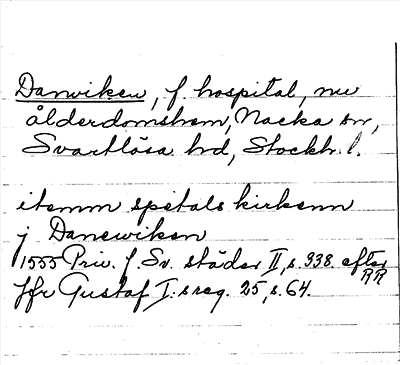 Danviken, f hospital, nu
ålderdomshem, Nacka sn,
Svartlösa hd, Stockh. l.
itemm spetals kirkenn
j Danewiken
1555 Priv. f. Sv. städer II, s. 338. efter RR
Jfr Gustaf I:s reg. 25, s. 64.